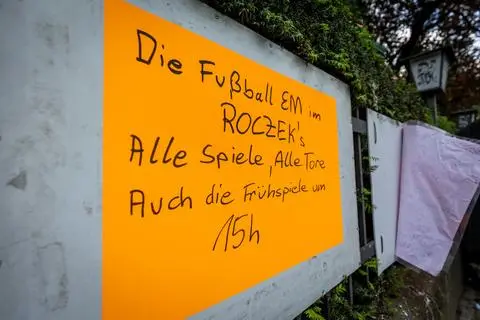 Die Fußball EM im
ROCZEK's
Alle Spiele, Alle Tore
Auch die Frühspiele um
15h